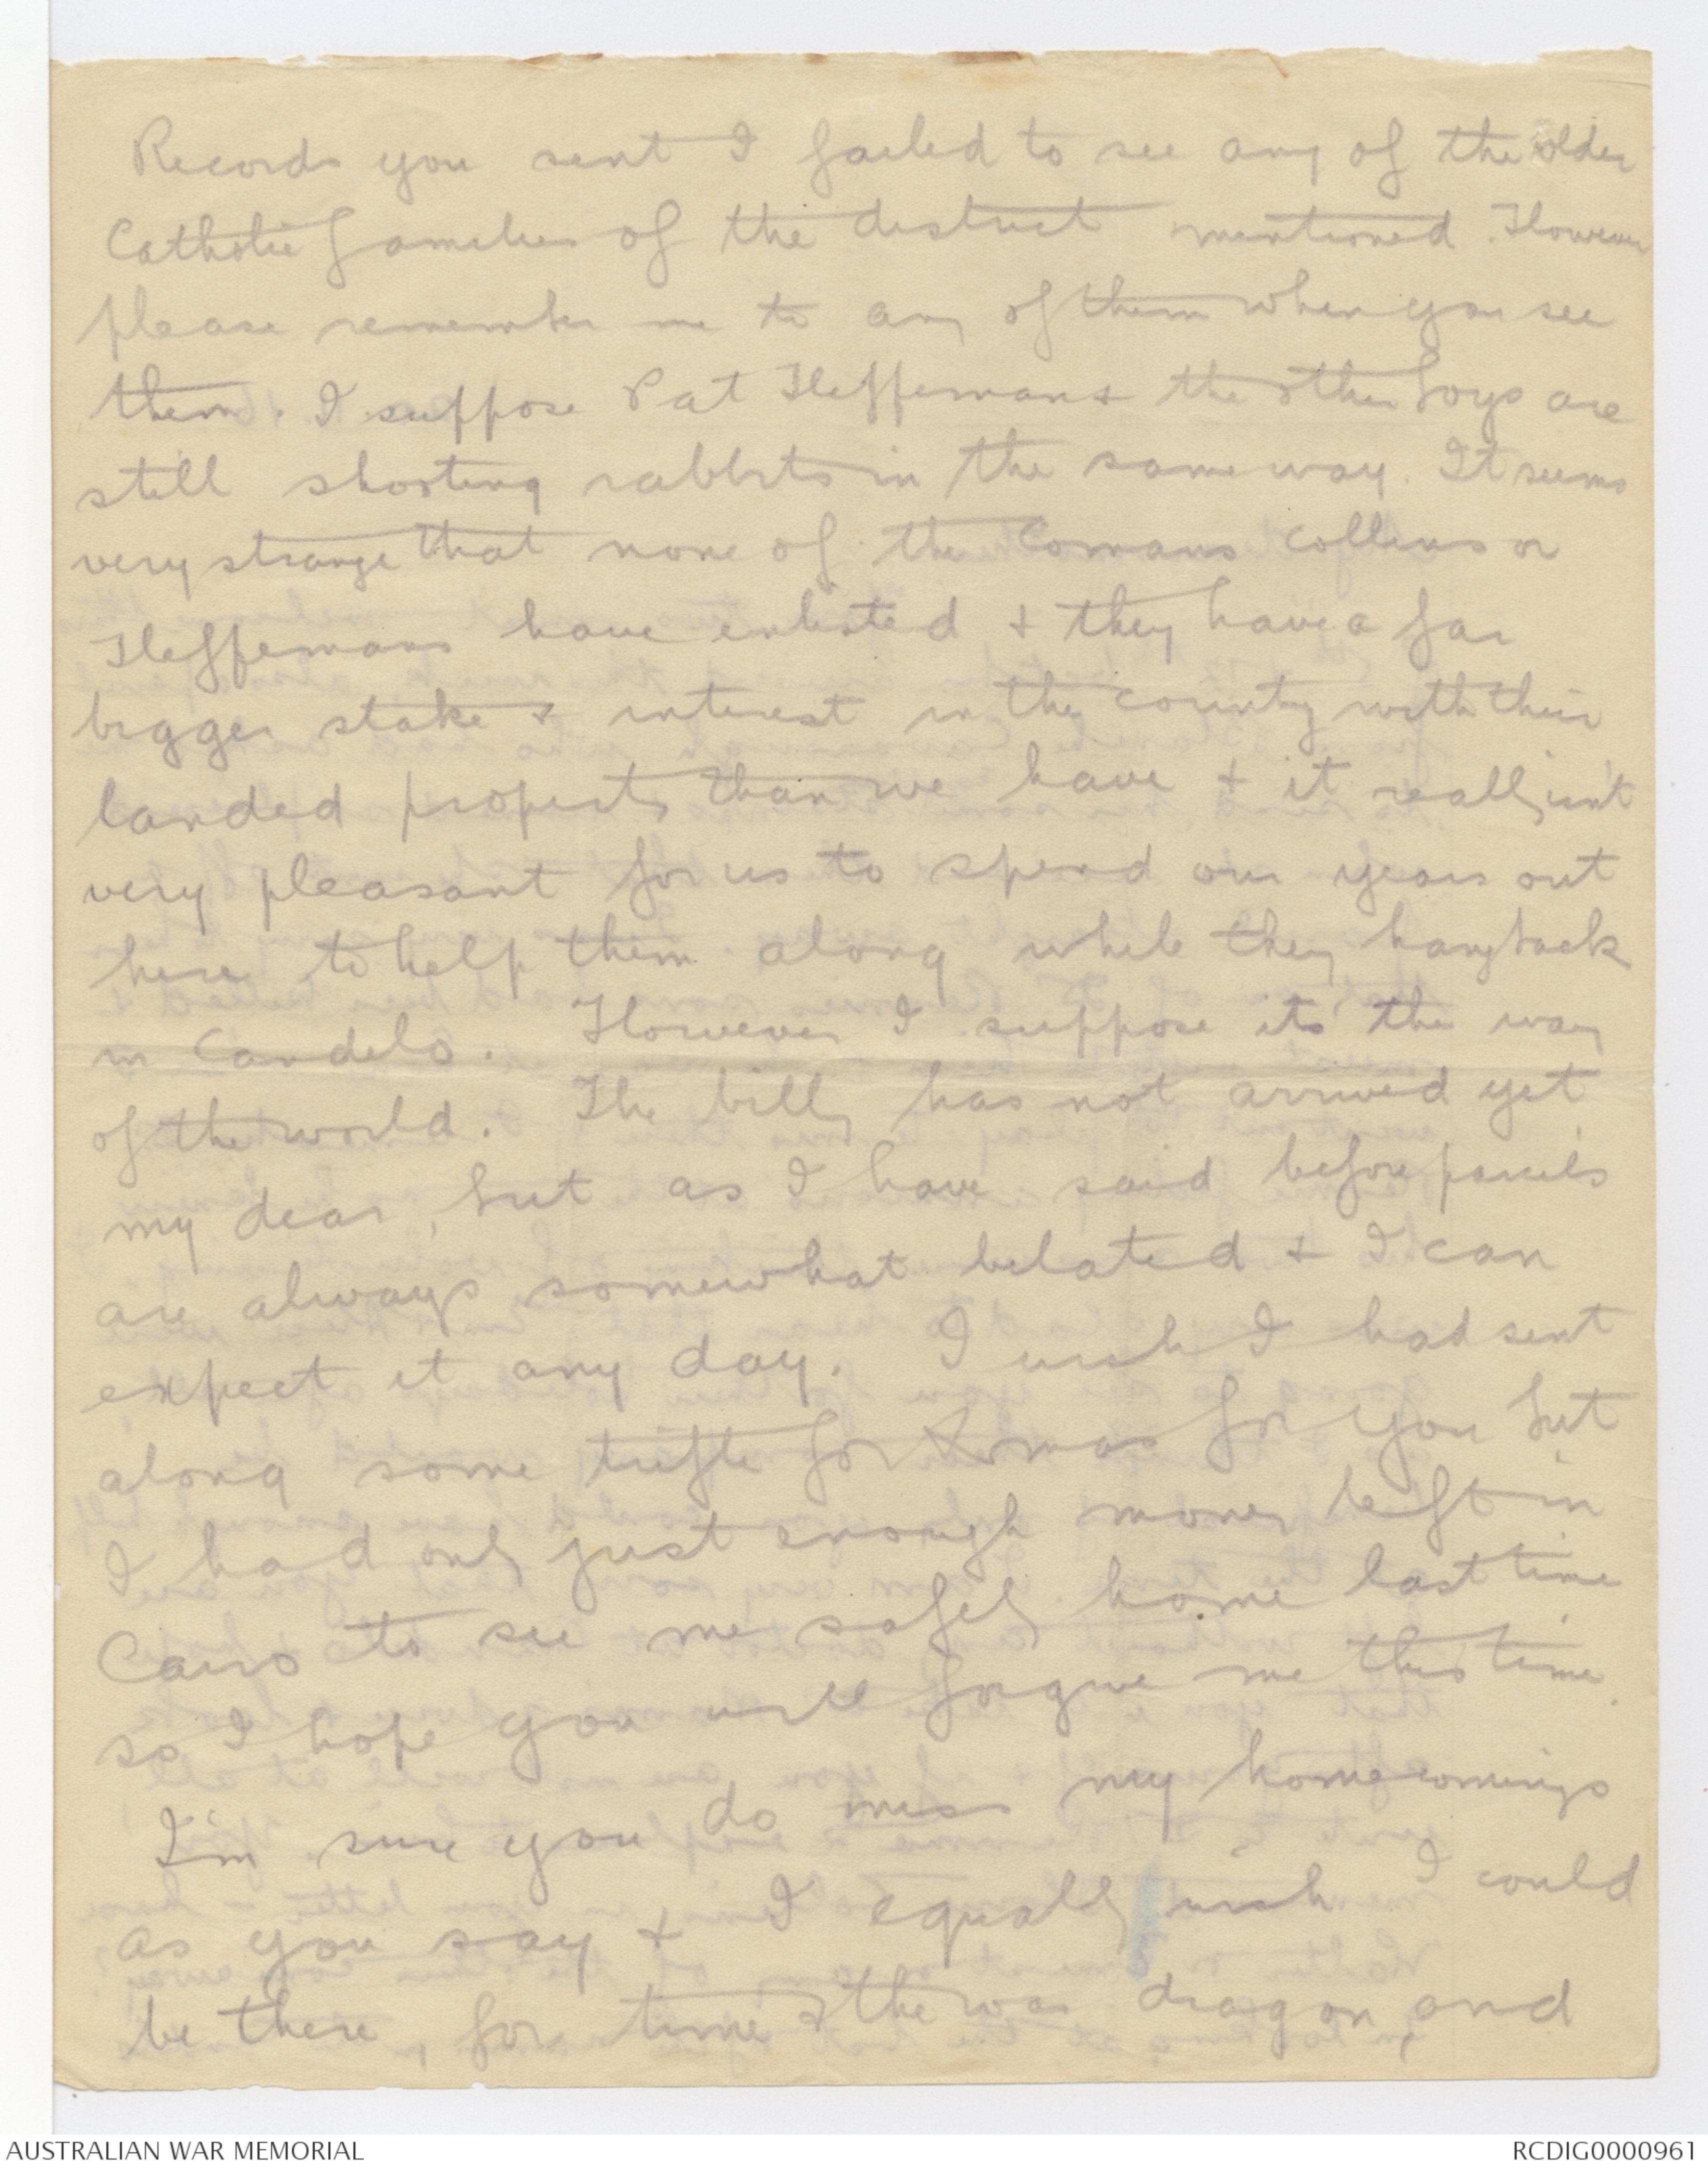 Records you sent I failed to see any of the older
Catholic families of the district mentioned. However
please remember me to any of them when you see
them. I suppose Pat Heffernan & the other boys are
still shooting rabbits in the same way. It seems
very strange that none of the Comans Collins or
Heffernans have enlisted & they have a far
bigger stake & interest in the country with their
landed property than we have & it really isn't
very pleasant for us to spend our years out
here to help them along while they hang back
in Candelo. However I suppose its the way
of the world. The billy has not arrived yet
my dear, but as I have said before parcels
are always somewhat belated & I can
expect it any day. I wish I had sent
along some trifle for Xmas for you but
I had only just enough money left in
Cairo to see me safely home last time
so I hope you will forgive me this time.
I'm sure you do miss my homecomings
as you say & I equally wish I could
be there, for time & the war dragon, and
AUSTRALIAN WAR MEMORIAL
RCDIG0000961